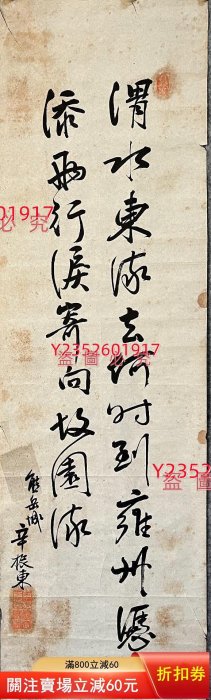 渭水東流去何时到雍州憑
添兩行淚寄向故園流
熊岳城
辛振東
01917
必 究
Y2352601917
盜 圖 必 究
Y23526
盜 圖
滿800立減60
關注賣場立減60元
折扣券